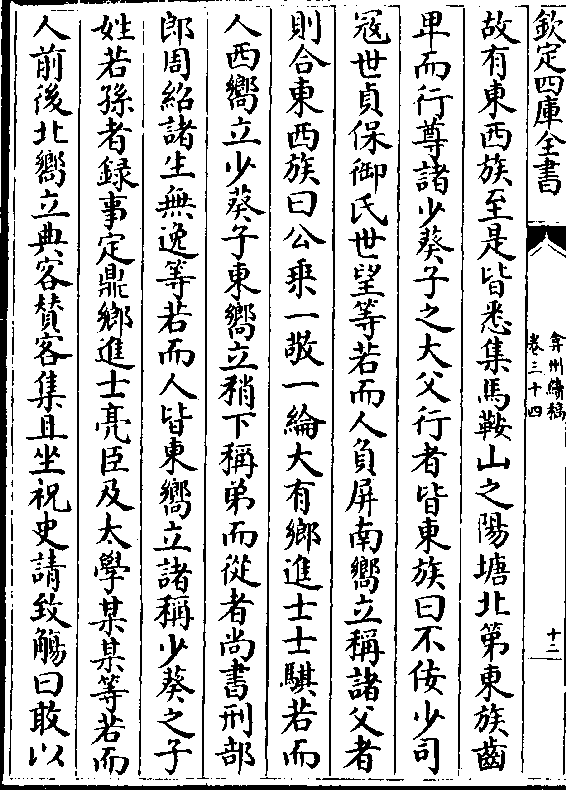 欽定四庫全書
弇州續稿
卷三十四
十二
故有東西族至是皆悉集馬鞍山之陽塘北第東族齒
卑而行尊諸少葵子之大父行者皆東族曰不佞少司
寇世貞保御氏世望等若而人負屏南嚮立稱諸父者
則合東西族曰公乗一敬一綸大有鄉進士士騏若而
人西嚮立少葵子東嚮立稍下稱弟而從者尚書刑部
郎周紹諸生無逸等若而人皆東嚮立諸稱少葵之子
姓若孫者録事定鼎鄉進士亮臣及太學某某等若而
人前後北嚮立典客賛客集且坐祝史請致觴曰敢以